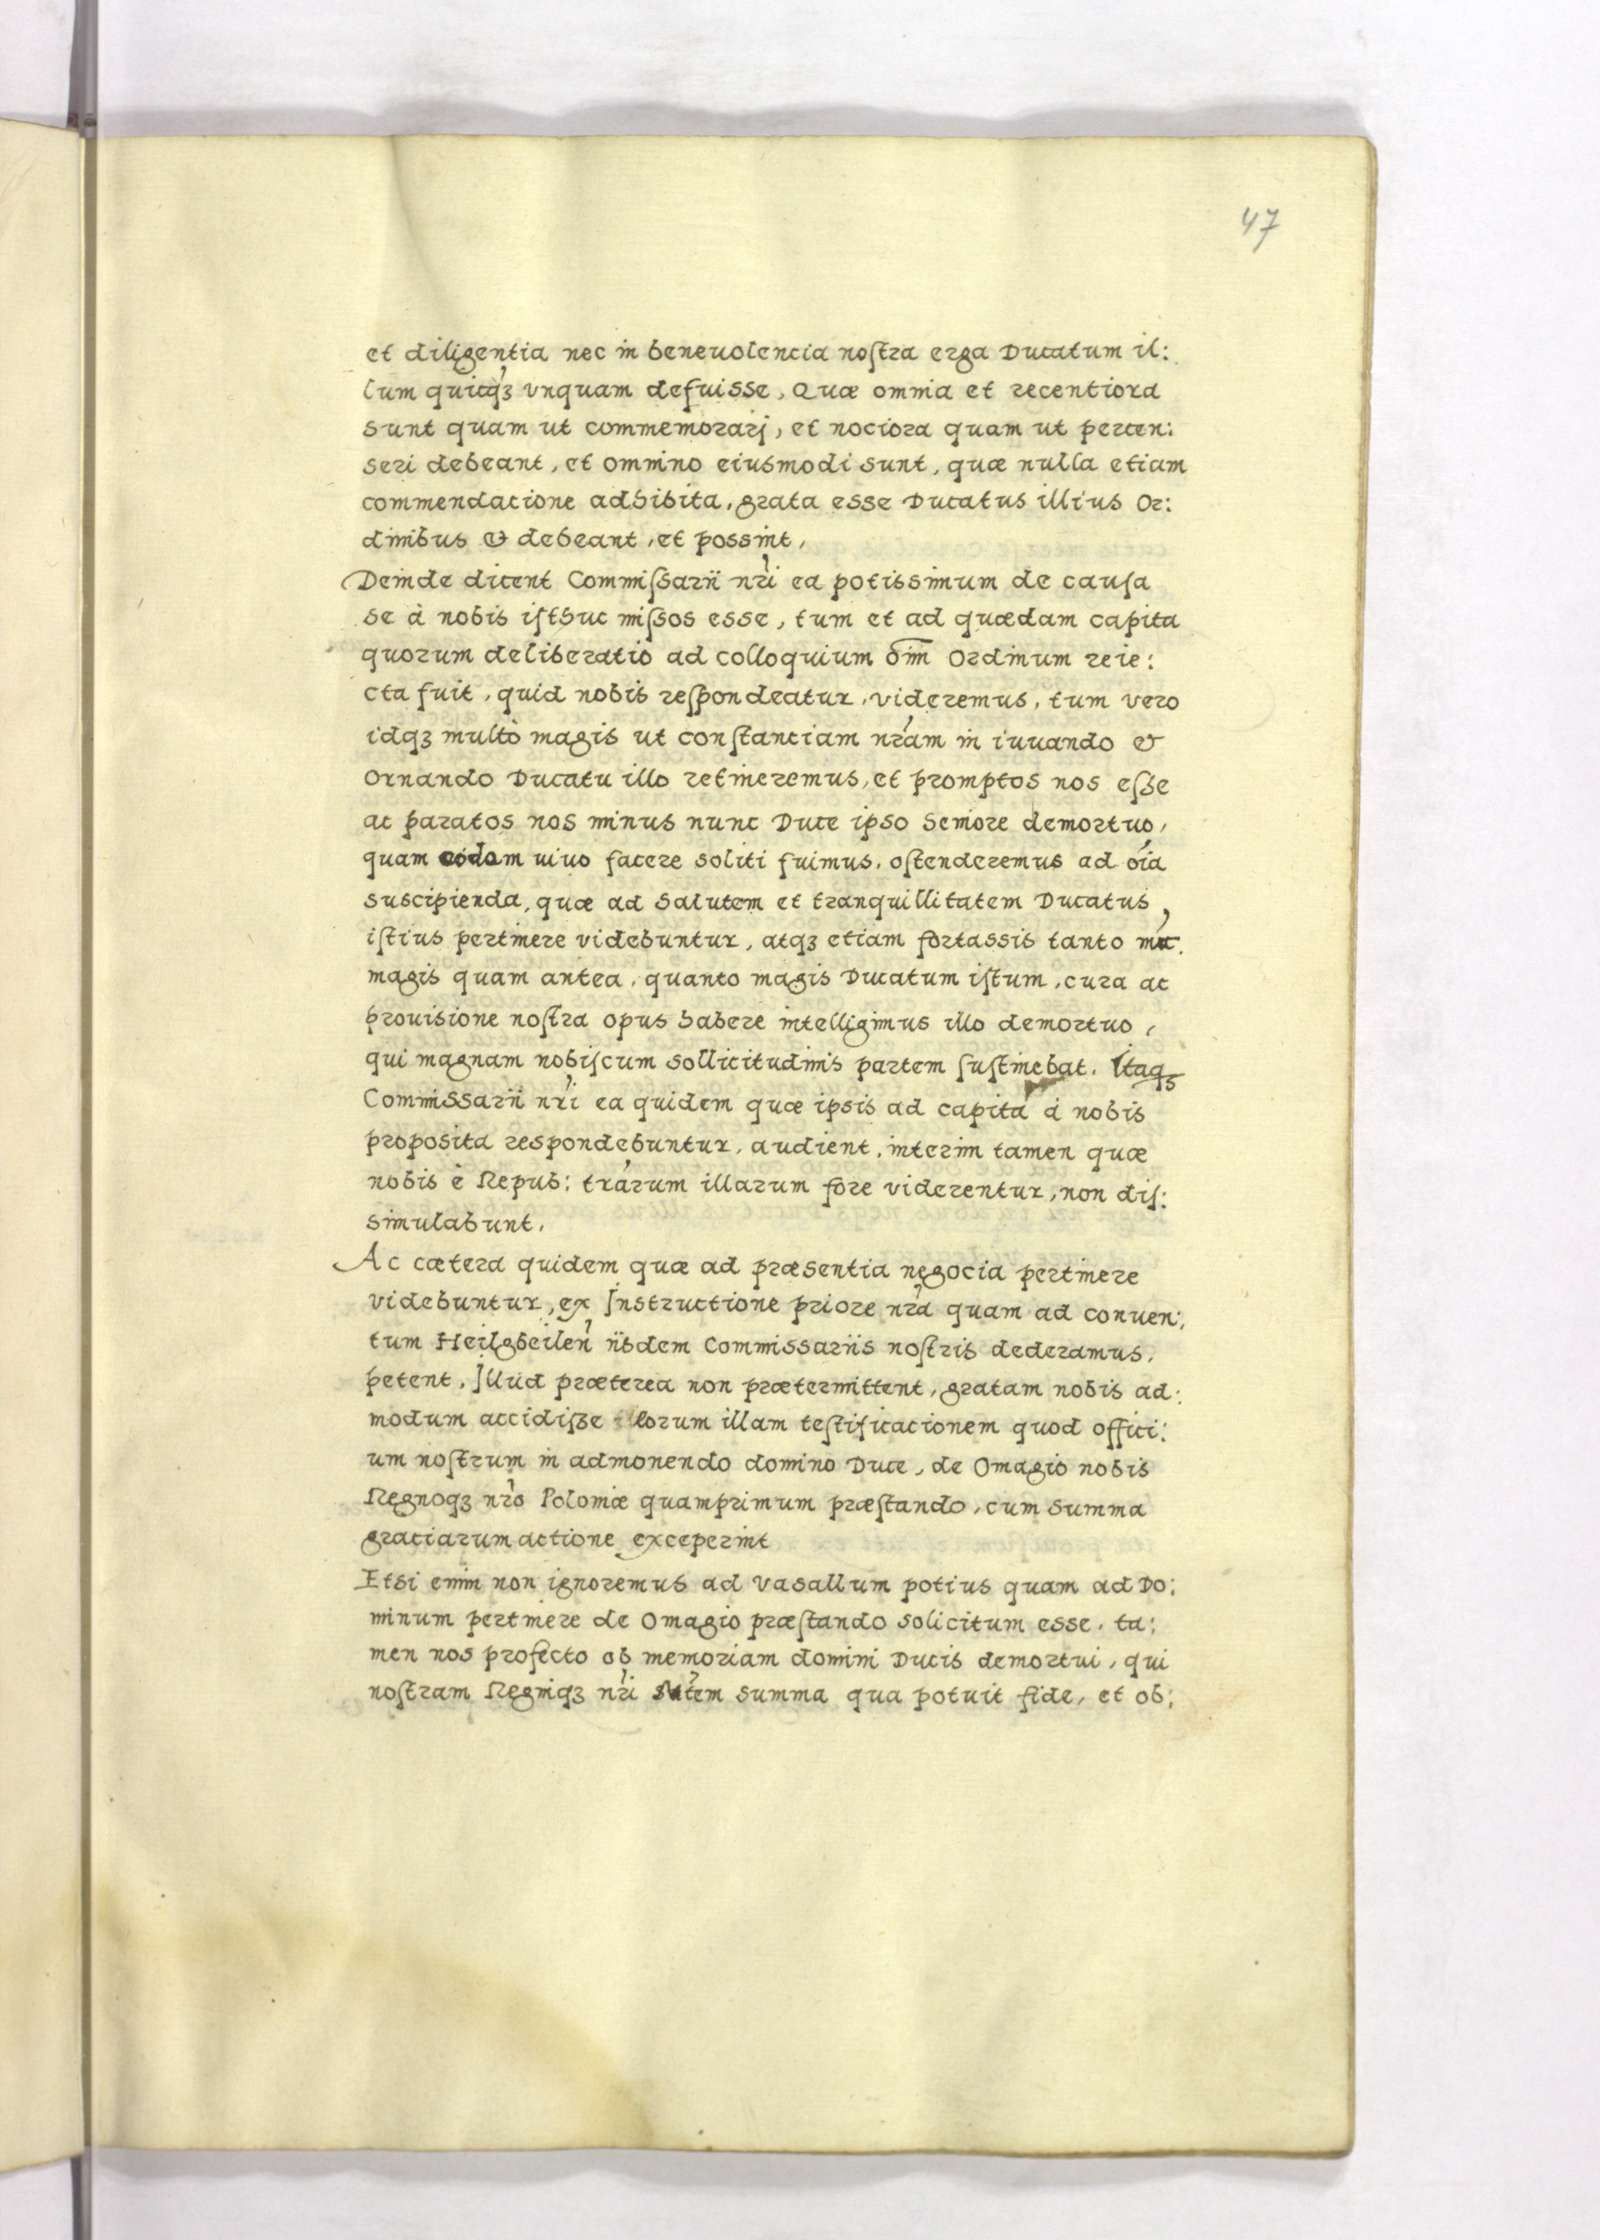 47
et diligentia nec in beneuolencia nostra erga Ducatum il:
lum quicq́ꝫ vnquam defuisse, Quæ omnia et recentiora
sunt quam ut commemorarj, et nociora quam ut percen:
seri debeant, et omnino eiusmodi sunt, quæ nulla etiam
commendacione adhibita, grata esse Ducatus illius Or:
dinibus & debeant, et possint,
Deinde dicent Commissarii nr̃i ea potissimum de causa
se à nobis isthuc missos esse, tum et ad quædam capita
quorum deliberatio ad colloquium om̃n Ordinum reie:
cta fuit, quid nobis respondeatur, videremus, tum vero
idqꝫ multò magis ut constanciam nr̃am in iuuando &
Ornando Ducatu illo retineremus, et promptos nos esse
ac paratos nos minus nunc Duce ipso Seniore demortuo,
quam eodem uiuo facere soliti fuimus, ostenderemus ad oı̃a
suscipienda, quæ ad salutem et tranquillitatem Ducatus
istius pertinere videbuntur, atqꝫ etiam fortassis tanto
magis quam antea, quanto magis Ducatum istum, cura ac
prouisione nostra opus habere intelligimus illo demortuo,
qui magnam nobiscum sollicitudinis partem sustinebat. Itaqꝫ
Commissarii nr̃i ea quidem quæ ipsis ad capita à nobis
proposita respondebuntur, audient, interim tamen quæ
nobis è Repub: tr̃arum illarum fore viderentur, non dis:
simulabunt,
Ac cætera quidem quæ ad præsentia negocia pertinere
videbuntur, ex Instructione priore nr̃a quam ad conuen:
tum Heilgbeileñ iisdem Commissariis nostris dederamus,
petent, Illud præterea non prætermittent, gratam nobis ad:
modum accidisse illorum illam testificacionem quod offici:
um nostrum in admonendo domino Duce, de Omagio nobis
Regnoqꝫ nr̃o Poloniæ quamprimum præstando, cum summa
graciarum actione exceperint
Etsi enim non ignoremus ad Vasallum potius quam ad Do:
minum pertinere de Omagio præstando solicitum esse, ta:
men nos profecto ob memoriam domini Ducis demortui, qui
nostram Regniqꝫ nr̃i summa qua potuit fide, et ob: